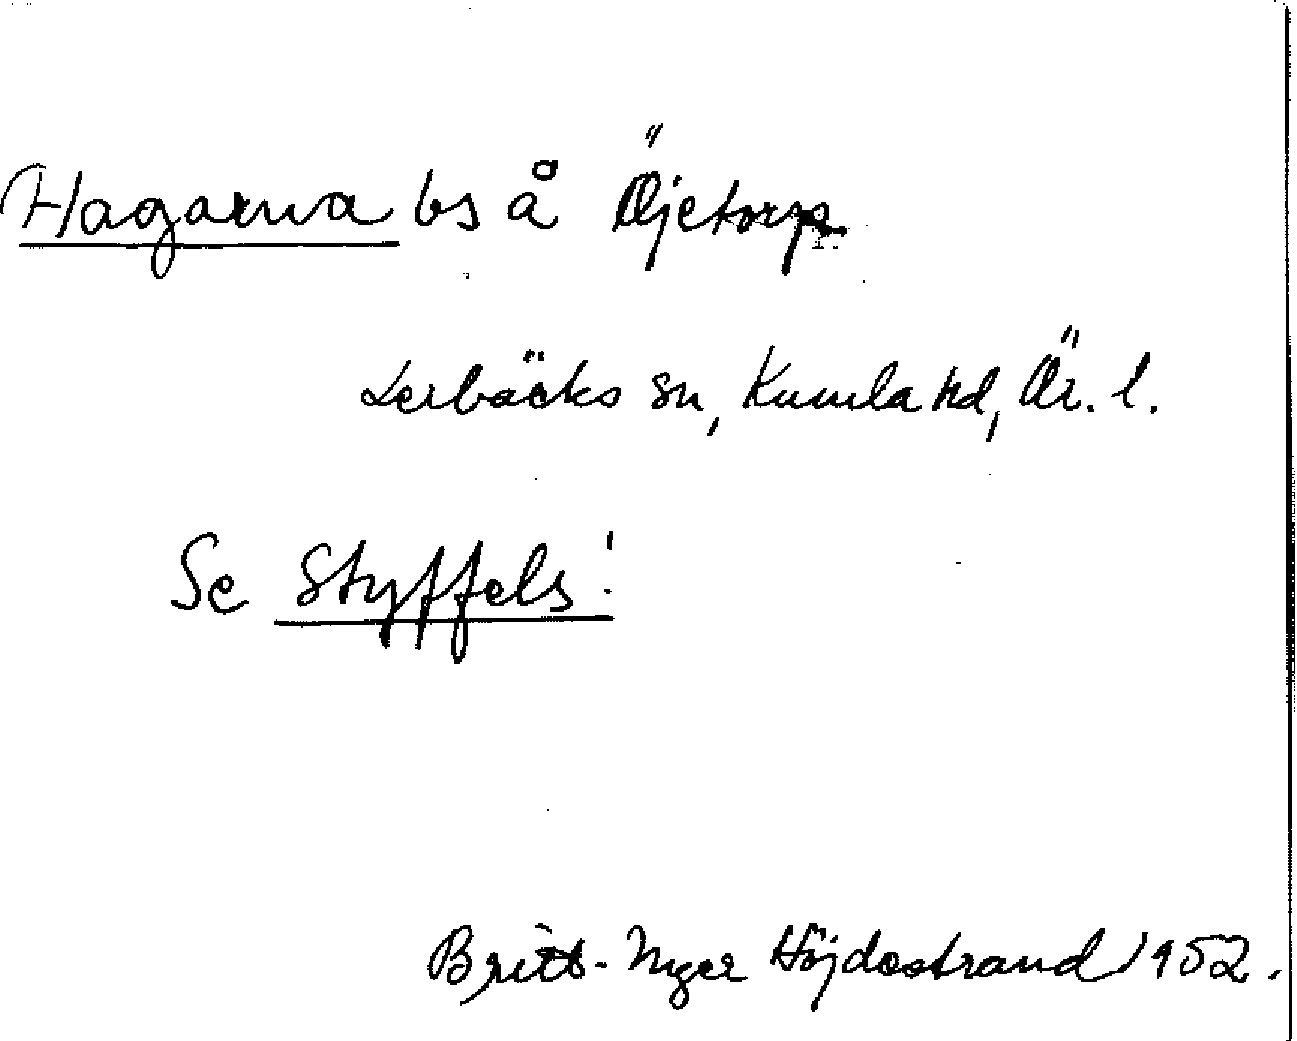 Hagarna bs å Öjetorp
Lerbäcks sn, Kumla hd, Ör. l.
Se Styffels!
Britt-Inger Höjdestrand 1952.